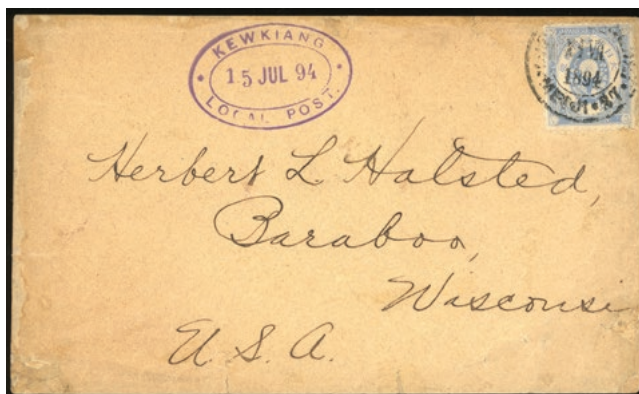 KEWKIANG
15 JUL 94
LOCAL POST.
1894
Herbert L. Halsted,
Baraboo,
Wisconsi
U.S.A.